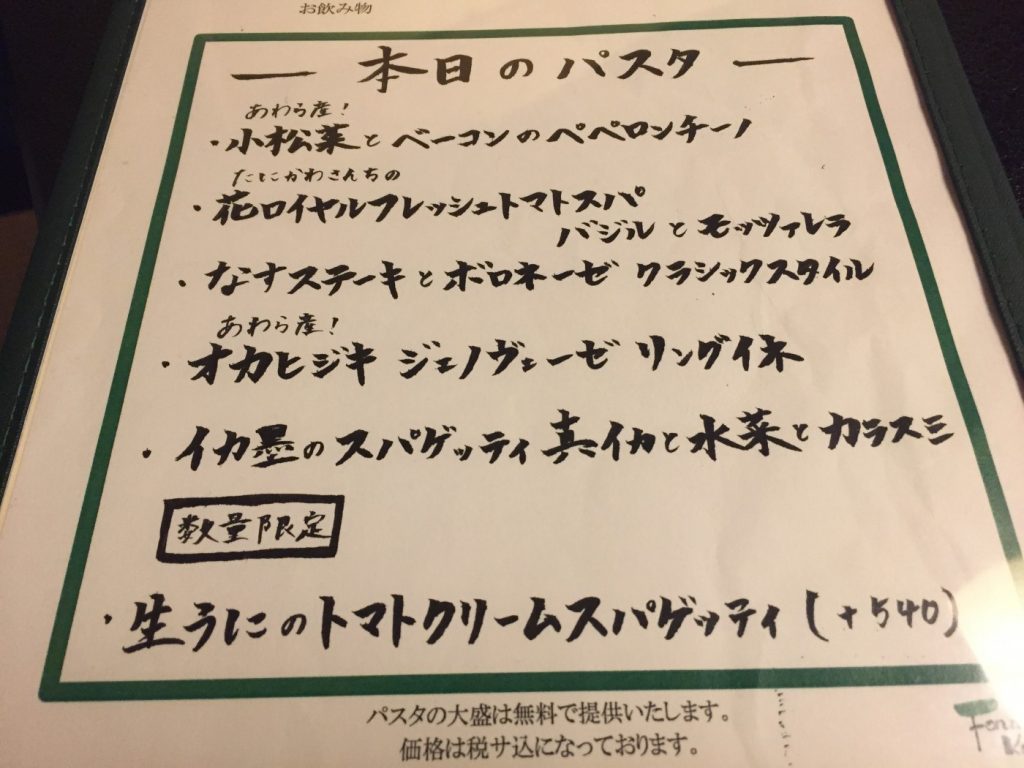 お飲み物
― 本日のパスタ ―
あわら産!
・小松菜とベーコンのペペロンチーノ
たにかわさんちの
・花ロイヤルフレッシュトマトスパ
バジルとモッツァレラ
・なすステーキとボロネーゼ クラシックスタイル
あわら産!
・オカヒジキ ジェノヴェーゼ リングイネ
・イカ墨のスパゲッティ 真イカと水菜とカラスミ
数量限定
・生うにのトマトクリームスパゲッティ (+540)
パスタの大盛は無料で提供いたします。
価格は税サ込になっております。